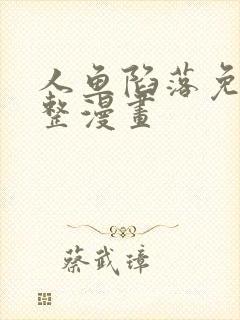 人鱼陷落免
整漫畫
蔡武璋